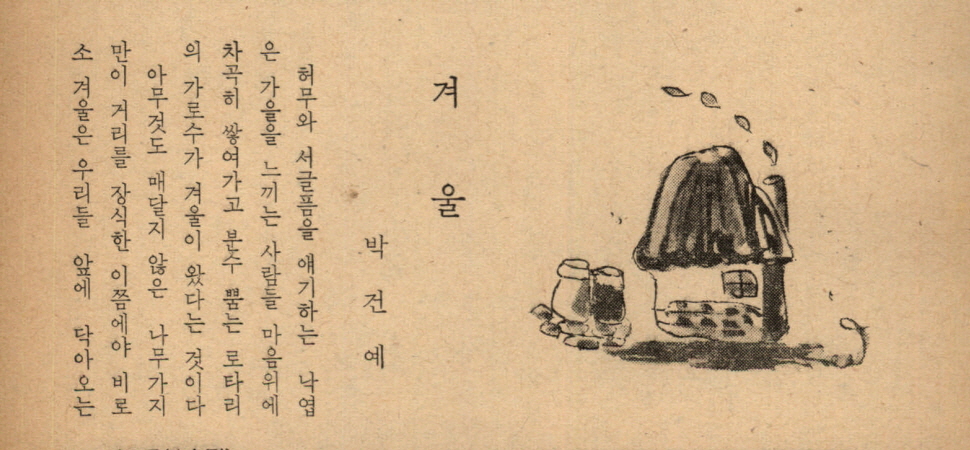 겨울
박건예
허무와 서글픔을 얘기하는 낙엽
은 가을을 느끼는 사람들 마음위에
차곡히 쌓여가고 분수 뿜는 로타리
의 가로수가 겨울이 왔다는 것이다
아무것도 매달지 않은 나무가지
만이 거리를 장식한 이쯤에야 비로
소 겨울은 우리들 앞에 닥아오는